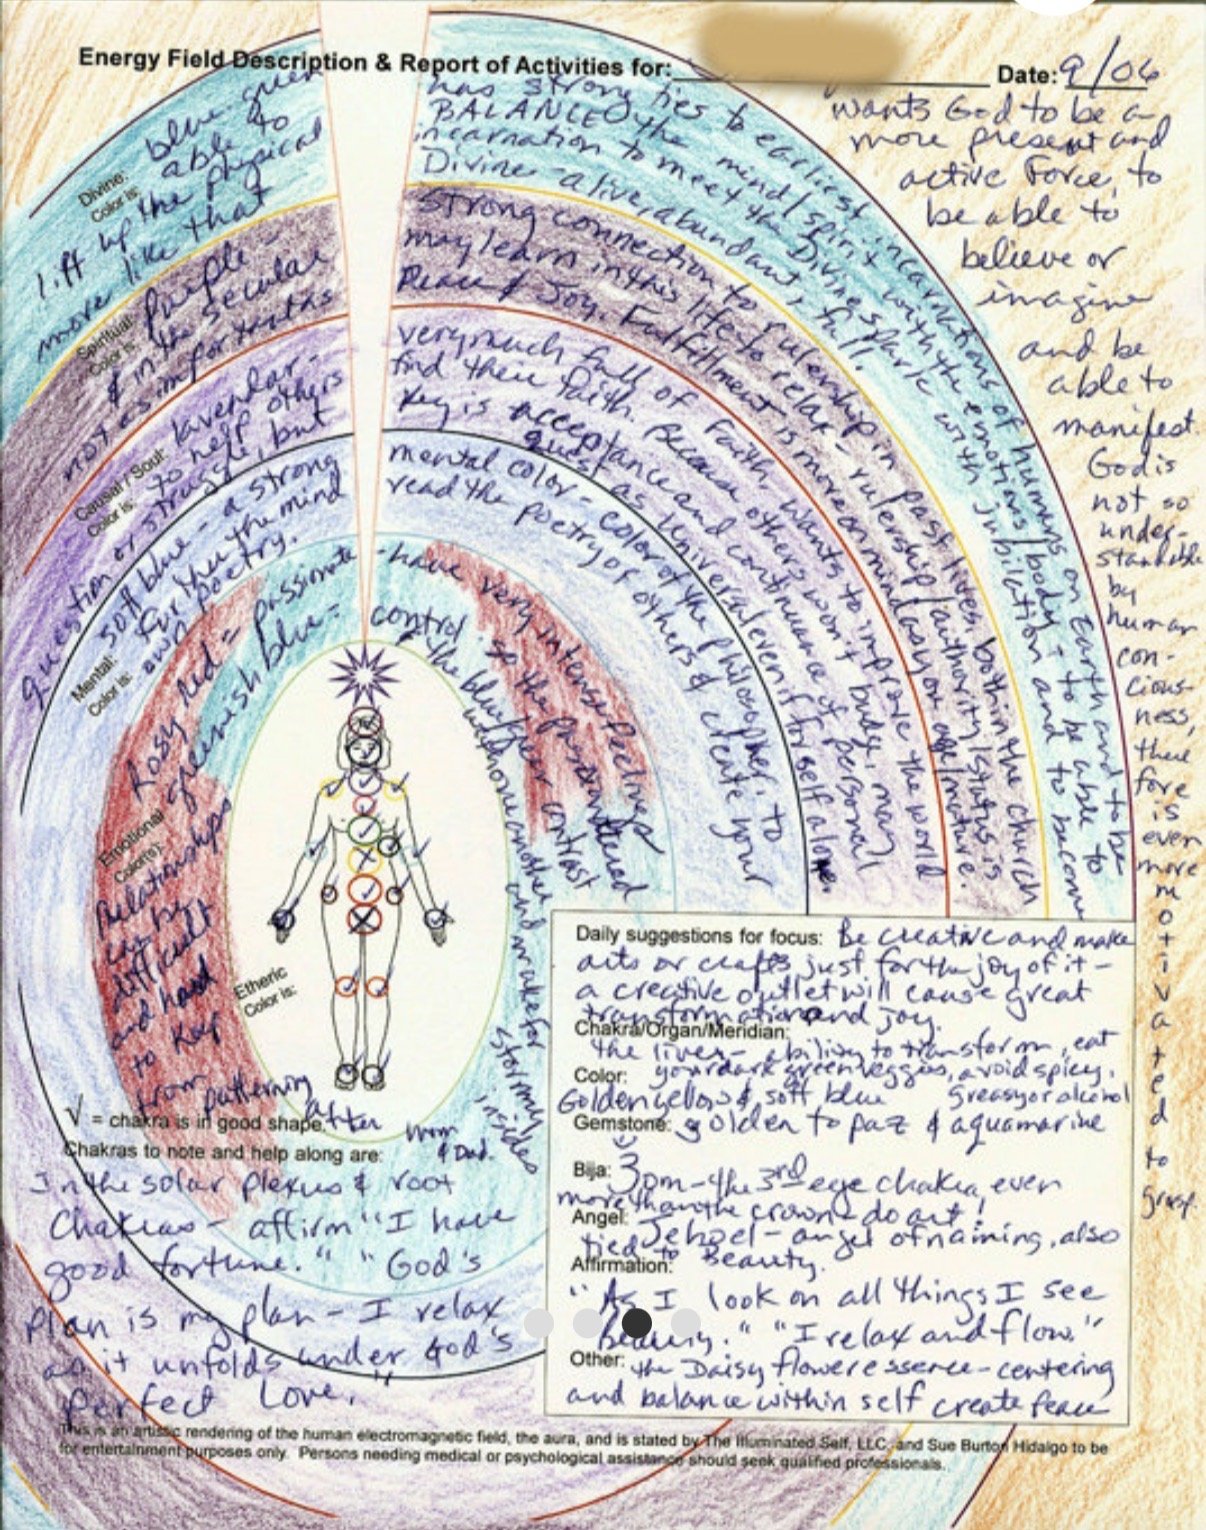 Energy Field Description & Report of Activities for:
Date: 9/06
Divine:
Color is:
blue green
able to
lift up the physical
more like that
has strong ties to earliest incarnations of humans on Earth and to be
BALANCED the mind/spirit with the emotions/body & to be able to
incarnation to meet the Divine spark with jubilation and to become
Divine - alive, abundant & full.
Spiritual:
Color is:
purple -
& in the secular
not as imp for truths
Strong connection to rulership in past lives, both in the church
may learn in this life to relax - rulership/authority/status is
Peace & Joy. Fulfillment is more on mind as you age/mature.
Causal / Soul:
Color is:
lavendar -
to help others
question or struggle, but
very much full of Faith, wants to improve the world
find their faith. Because others won't budge, may
Key is acceptance and continuance of personal
quest as Universal even if for self alone.
Mental:
Color is:
soft blue - a strong
further the mind
own poetry.
mental color - color of the philosopher, to
read the poetry of others & create your
Emotional
Color(s):
Rosy red = passionate
greenish blue =
- have very intense feelings
control; so the passion tered
the blue
one another and make for
stormy
insides
Relationships
can be
difficult
and hard
to keep
from patterning
after
mom
& Dad.
Etheric
Color is:
√ = chakra is in good shape.
Chakras to note and help along are:
In the solar plexus & root
Chakras - affirm "I have
good fortune." "God's
Plan is my plan - I relax
as it unfolds under God's
Perfect Love."
wants God to be a
more present and
active Force, to
be able to
believe or
imagine
and be
able to
manifest.
God is
not so
under-
standable
by
human
con-
cious-
ness,
there
fore
is
even
more
m
o
t
i
v
a
t
e
d
to
grasp.
Daily suggestions for focus: Be creative and make
arts or crafts just for the joy of it -
a creative outlet will cause great
transformation and joy.
Chakra/Organ/Meridian:
the liver - ability to transform, eat
your dark green veggies, avoid spicy,
greasy or alcohol
Color:
Golden yellow & soft blue
Gemstone: golden topaz & aquamarine
Bija: om - the 3rd eye chakra, even
more than the crown - do art!
Angel: Jehoel - angel of naming, also
tied to Beauty.
Affirmation:
"As I look on all things I see
beauty." "I relax and flow."
Other: the Daisy flower essence - centering
and balance within self create peace
This is an artistic rendering of the human electromagnetic field, the aura, and is stated by The Illuminated Self, LLC, and Sue Burton Hidalgo to be
for entertainment purposes only. Persons needing medical or psychological assistance should seek qualified professionals.